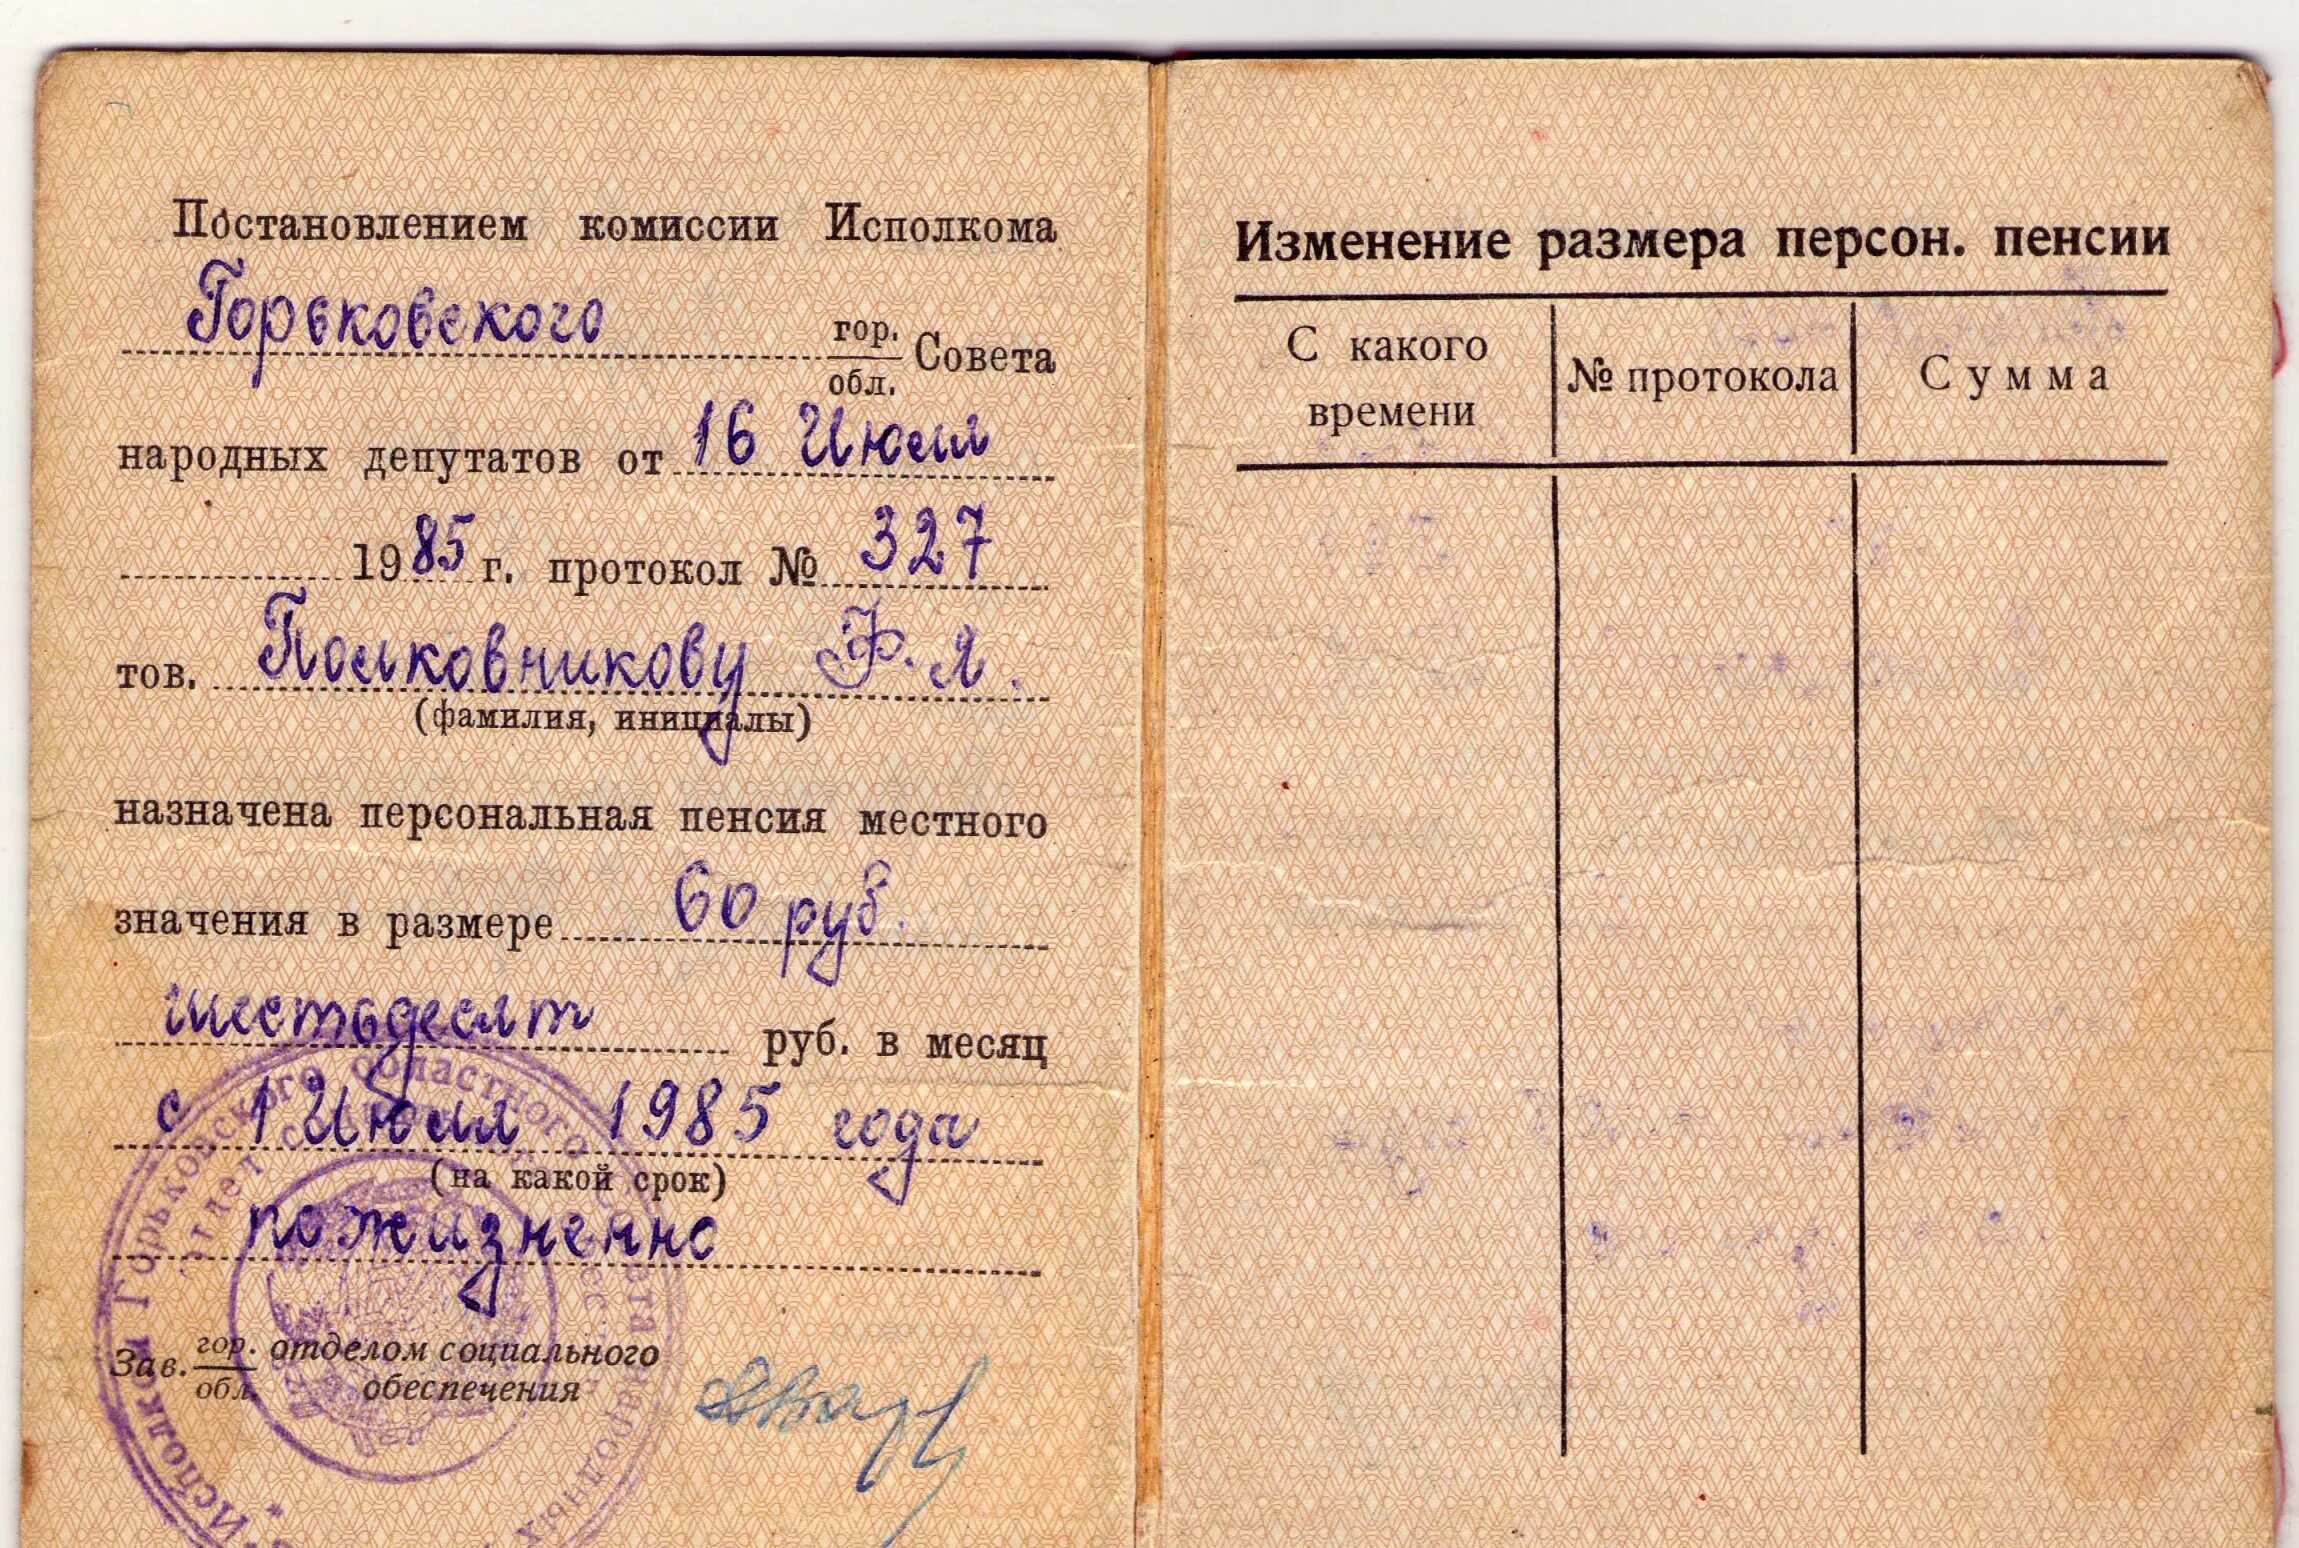 Постановлением комиссии Исполкома
Горьковского гор. Совета
обл.
народных депутатов от 16 Июля
1985 г. протокол № 327
тов. Полковникову Ф. Я.
(фамилия, инициалы)
назначена персональная пенсия местного
значения в размере 60 руб.
шестьдесят руб. в месяц
с 1 Июля 1985 года
(на какой срок)
пожизненно
Зав. гор. отделом социального
обл. обеспечения
Исполком Горьковского областного Совета народных
Изменение размера персон. пенсии
С какого
времени
№ протокола
Сумма